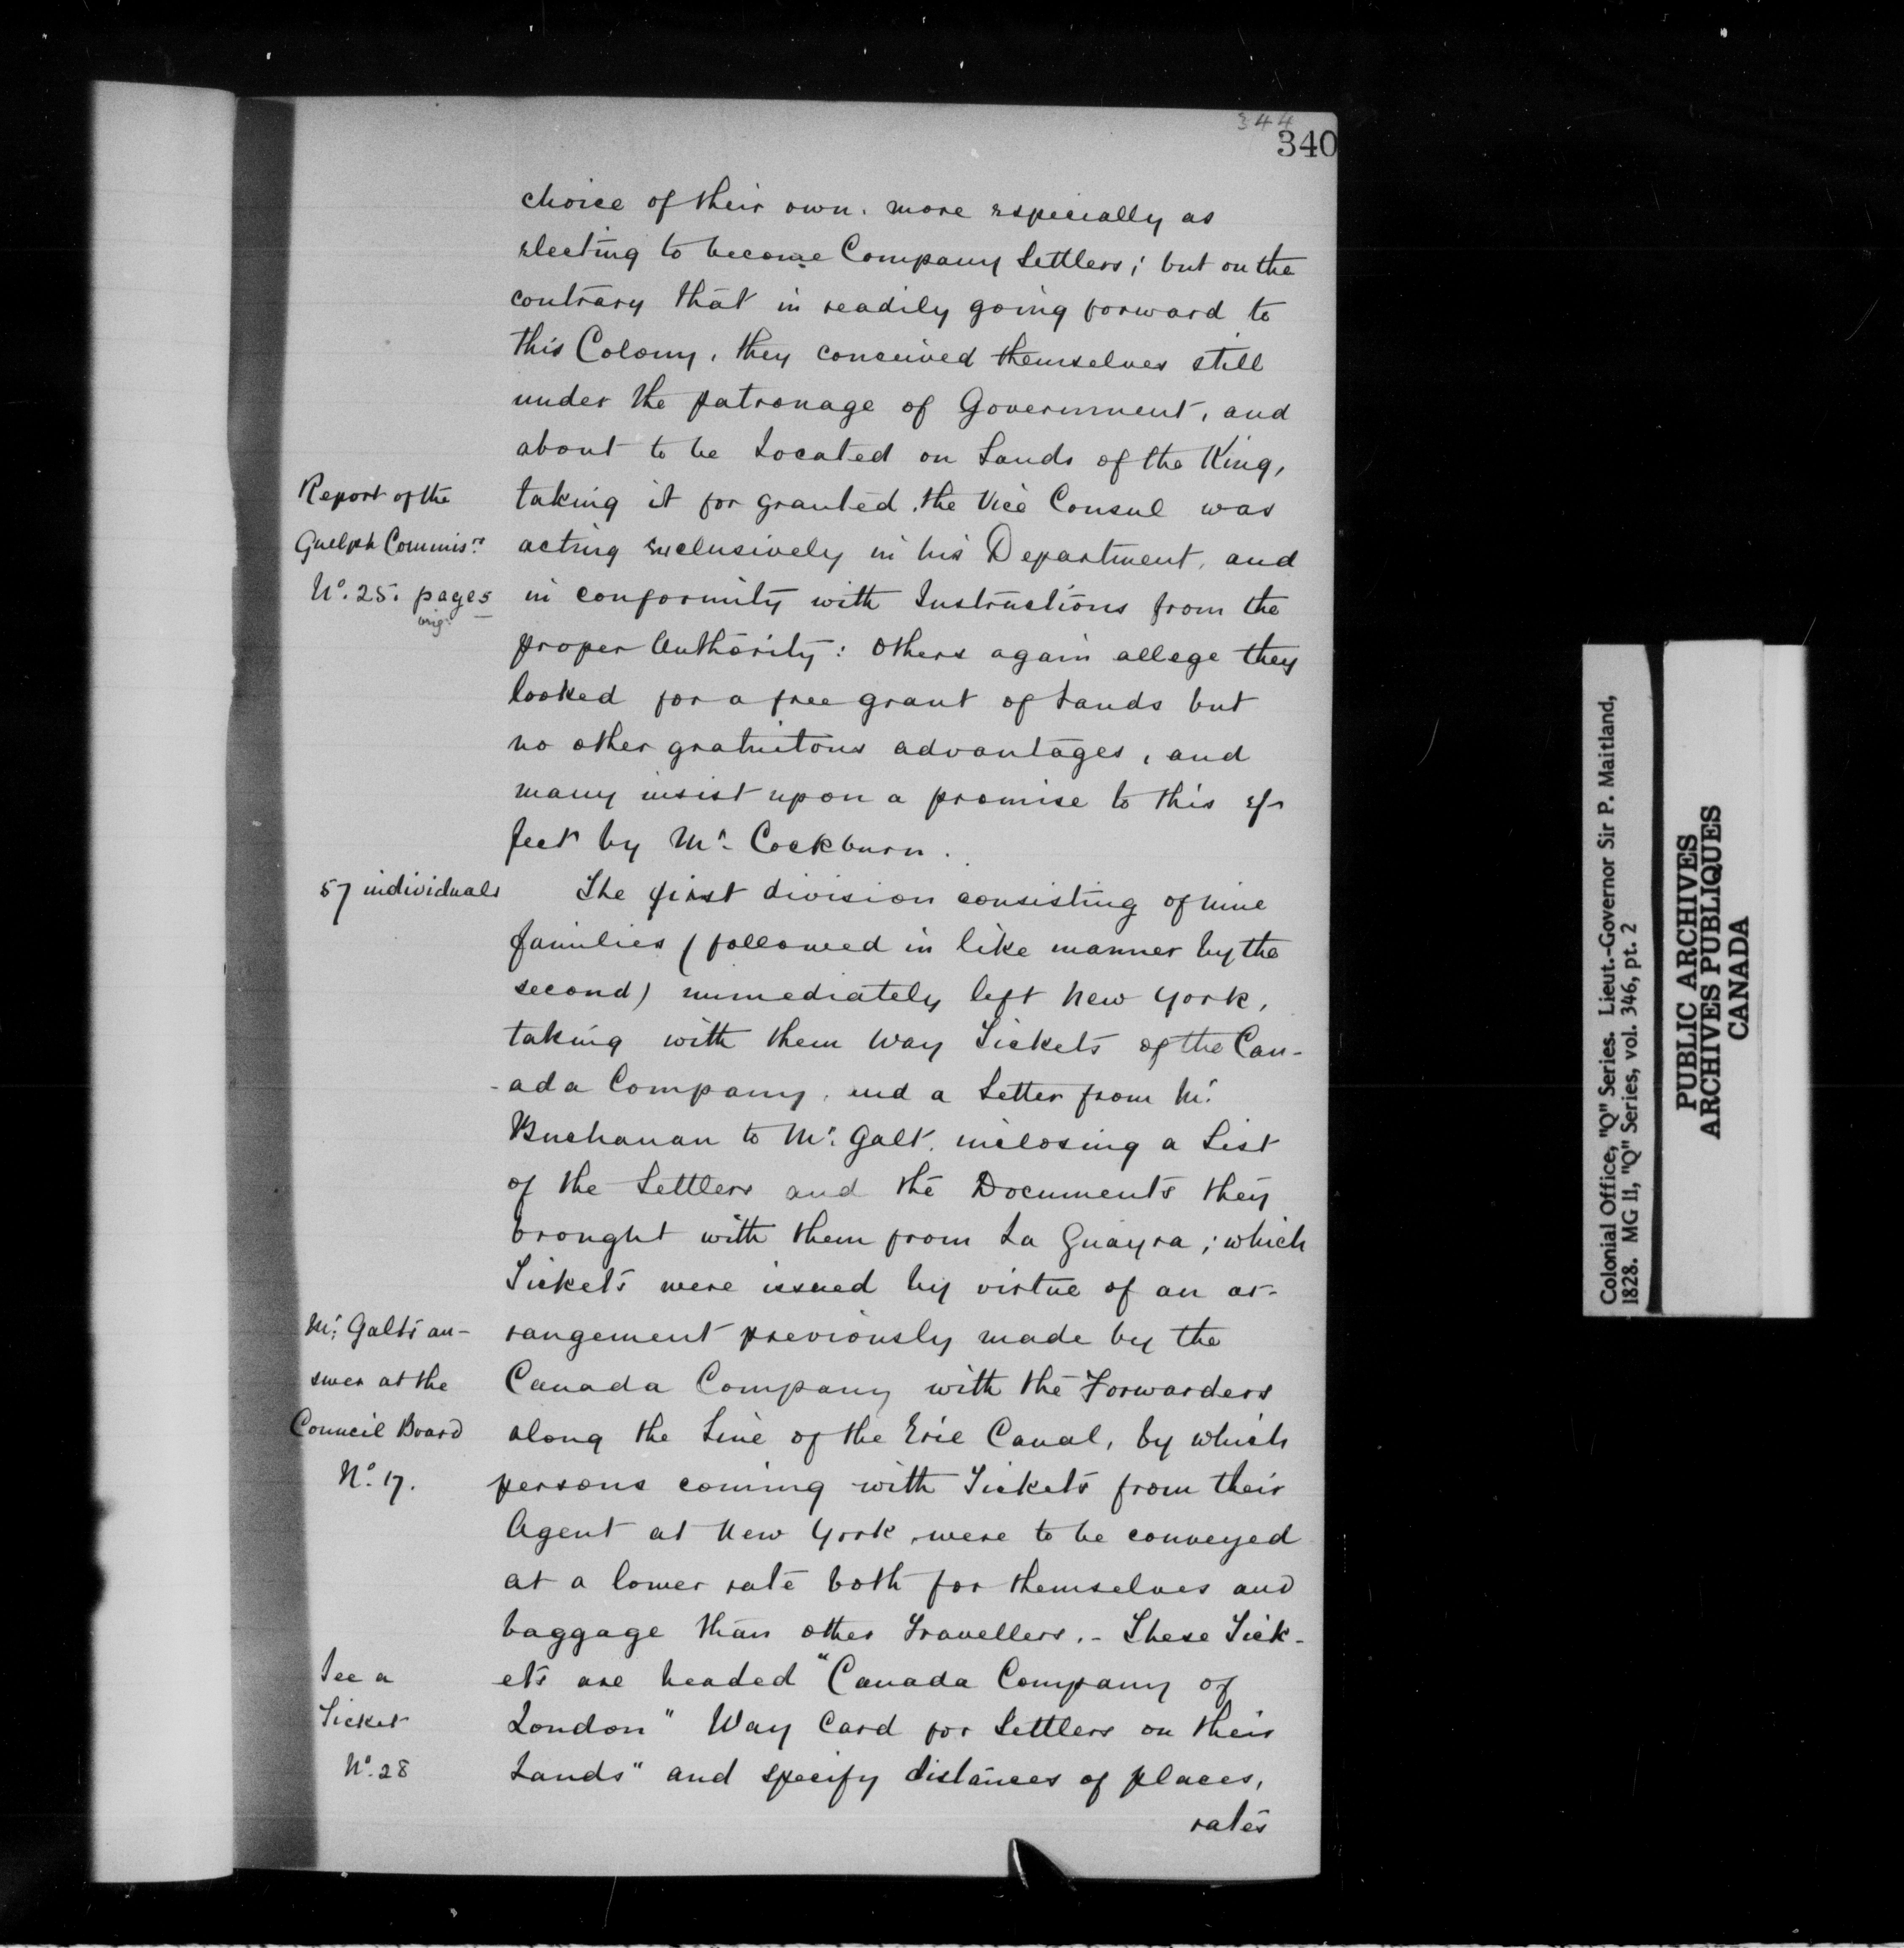 344
340
choice of their own. more especially as
electing to become Company Settlers; but on the
contrary that in readily going forward to
this Colony, they conceived themselves still
under the patronage of Government, and
about to be Located on Lands of the King,
Report of the
taking it for granted, the Vice Consul was
Guelph Commisrs
acting exclusively in his Department, and
No. 25. pages
orig:
in conformity with Instructions from the
proper Authority: Others again allege they
looked for a free grant of Lands but
no other gratuitous advantages, and
many insist upon a promise to this ef-
fect by Mr. Cockburn.
57 individuals
The first division consisting of nine
families (followed in like manner by the
second) immediately left New York,
taking with them Way Tickets of the Can-
-ada Company, and a Letter from Mr.
Buchanan to Mr. Galt, inclosing a List
of the Settlers and the Documents they
brought with them from La Guayra; which
Tickets were issued by virtue of an ar-
Mr. Galt's an-
rangement previously made by the
swer at the
Canada Company with the Forwarders
Council Board
along the Line of the Erie Canal, by which
No. 17.
persons coming with Tickets from their
Agent at New York, were to be conveyed
at a lower rate both for themselves and
baggage than other Travellers.- These Tick-
See a
ets are headed "Canada Company of
Ticket
London" Way Card for Settlers on their
No. 28
Lands" and specify distances of places,
rates
Colonial Office, "Q" Series. Lieut.-Governor Sir P. Maitland,
1828. MG 11, "Q" Series, vol. 346, pt. 2
PUBLIC ARCHIVES
ARCHIVES PUBLIQUES
CANADA